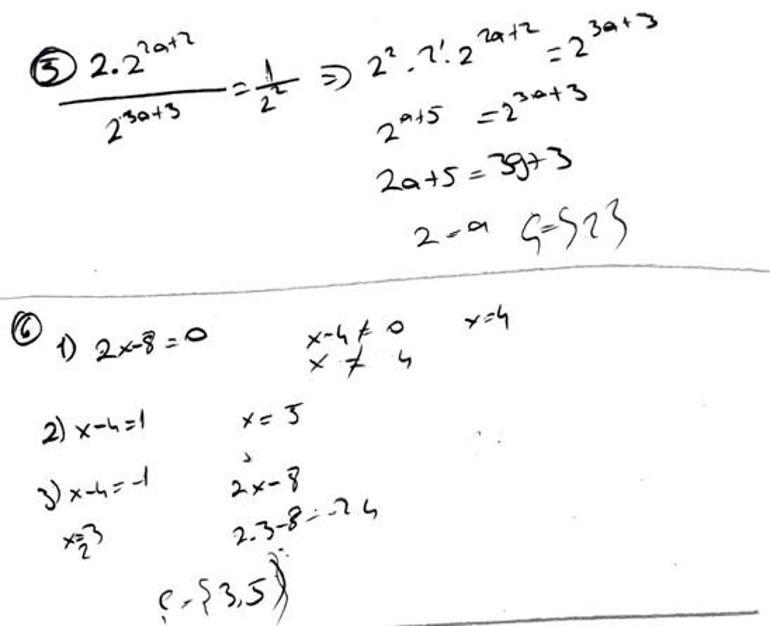 ⑤ 2·2^(2a+2) / 2^(3a+3) = 1/2^2 ⇒ 2^2 · 2^1 · 2^(2a+2) = 2^(3a+3)
2^(a+5) = 2^(3a+3)
2a+5 = 3a+3
2=a Ç={2}
⑥ 1) 2x-8=0 x-4≠0 x=4
x ≠ 4
2) x-4=1 x=5
3) x-4=-1 2x-8
x=3 2·3-8=-2
Ç={3,5}